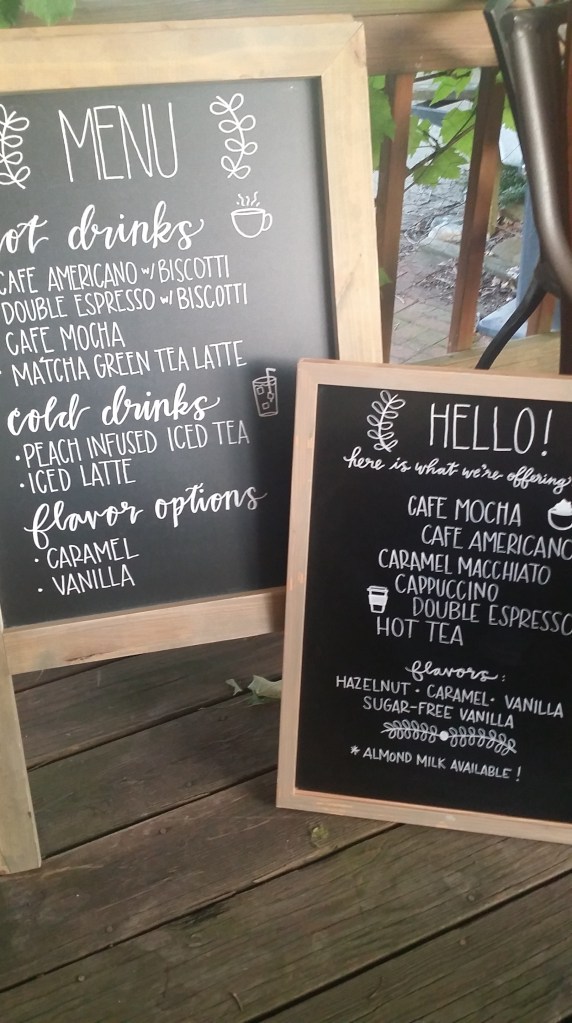 MENU
ot drinks
CAFE AMERICANO w/ BISCOTTI
DOUBLE ESPRESSO w/ BISCOTTI
CAFE MOCHA
• MATCHA GREEN TEA LATTE
cold drinks
• PEACH INFUSED ICED TEA
• ICED LATTE
flavor options
• CARAMEL
• VANILLA
HELLO!
here is what we're offering
CAFE MOCHA
CAFE AMERICANO
CARAMEL MACCHIATO
CAPPUCCINO
DOUBLE ESPRESSO
HOT TEA
flavors:
HAZELNUT • CARAMEL • VANILLA
SUGAR-FREE VANILLA
* ALMOND MILK AVAILABLE!